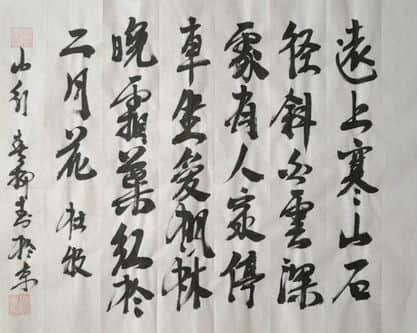 遠上寒山石
径斜白雲深
處有人家停
車坐愛楓林
晚霜葉红於
二月花 杜牧
山行 書於京